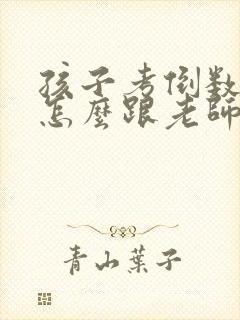 孩子考倒数
怎麼跟老師
青山葉子